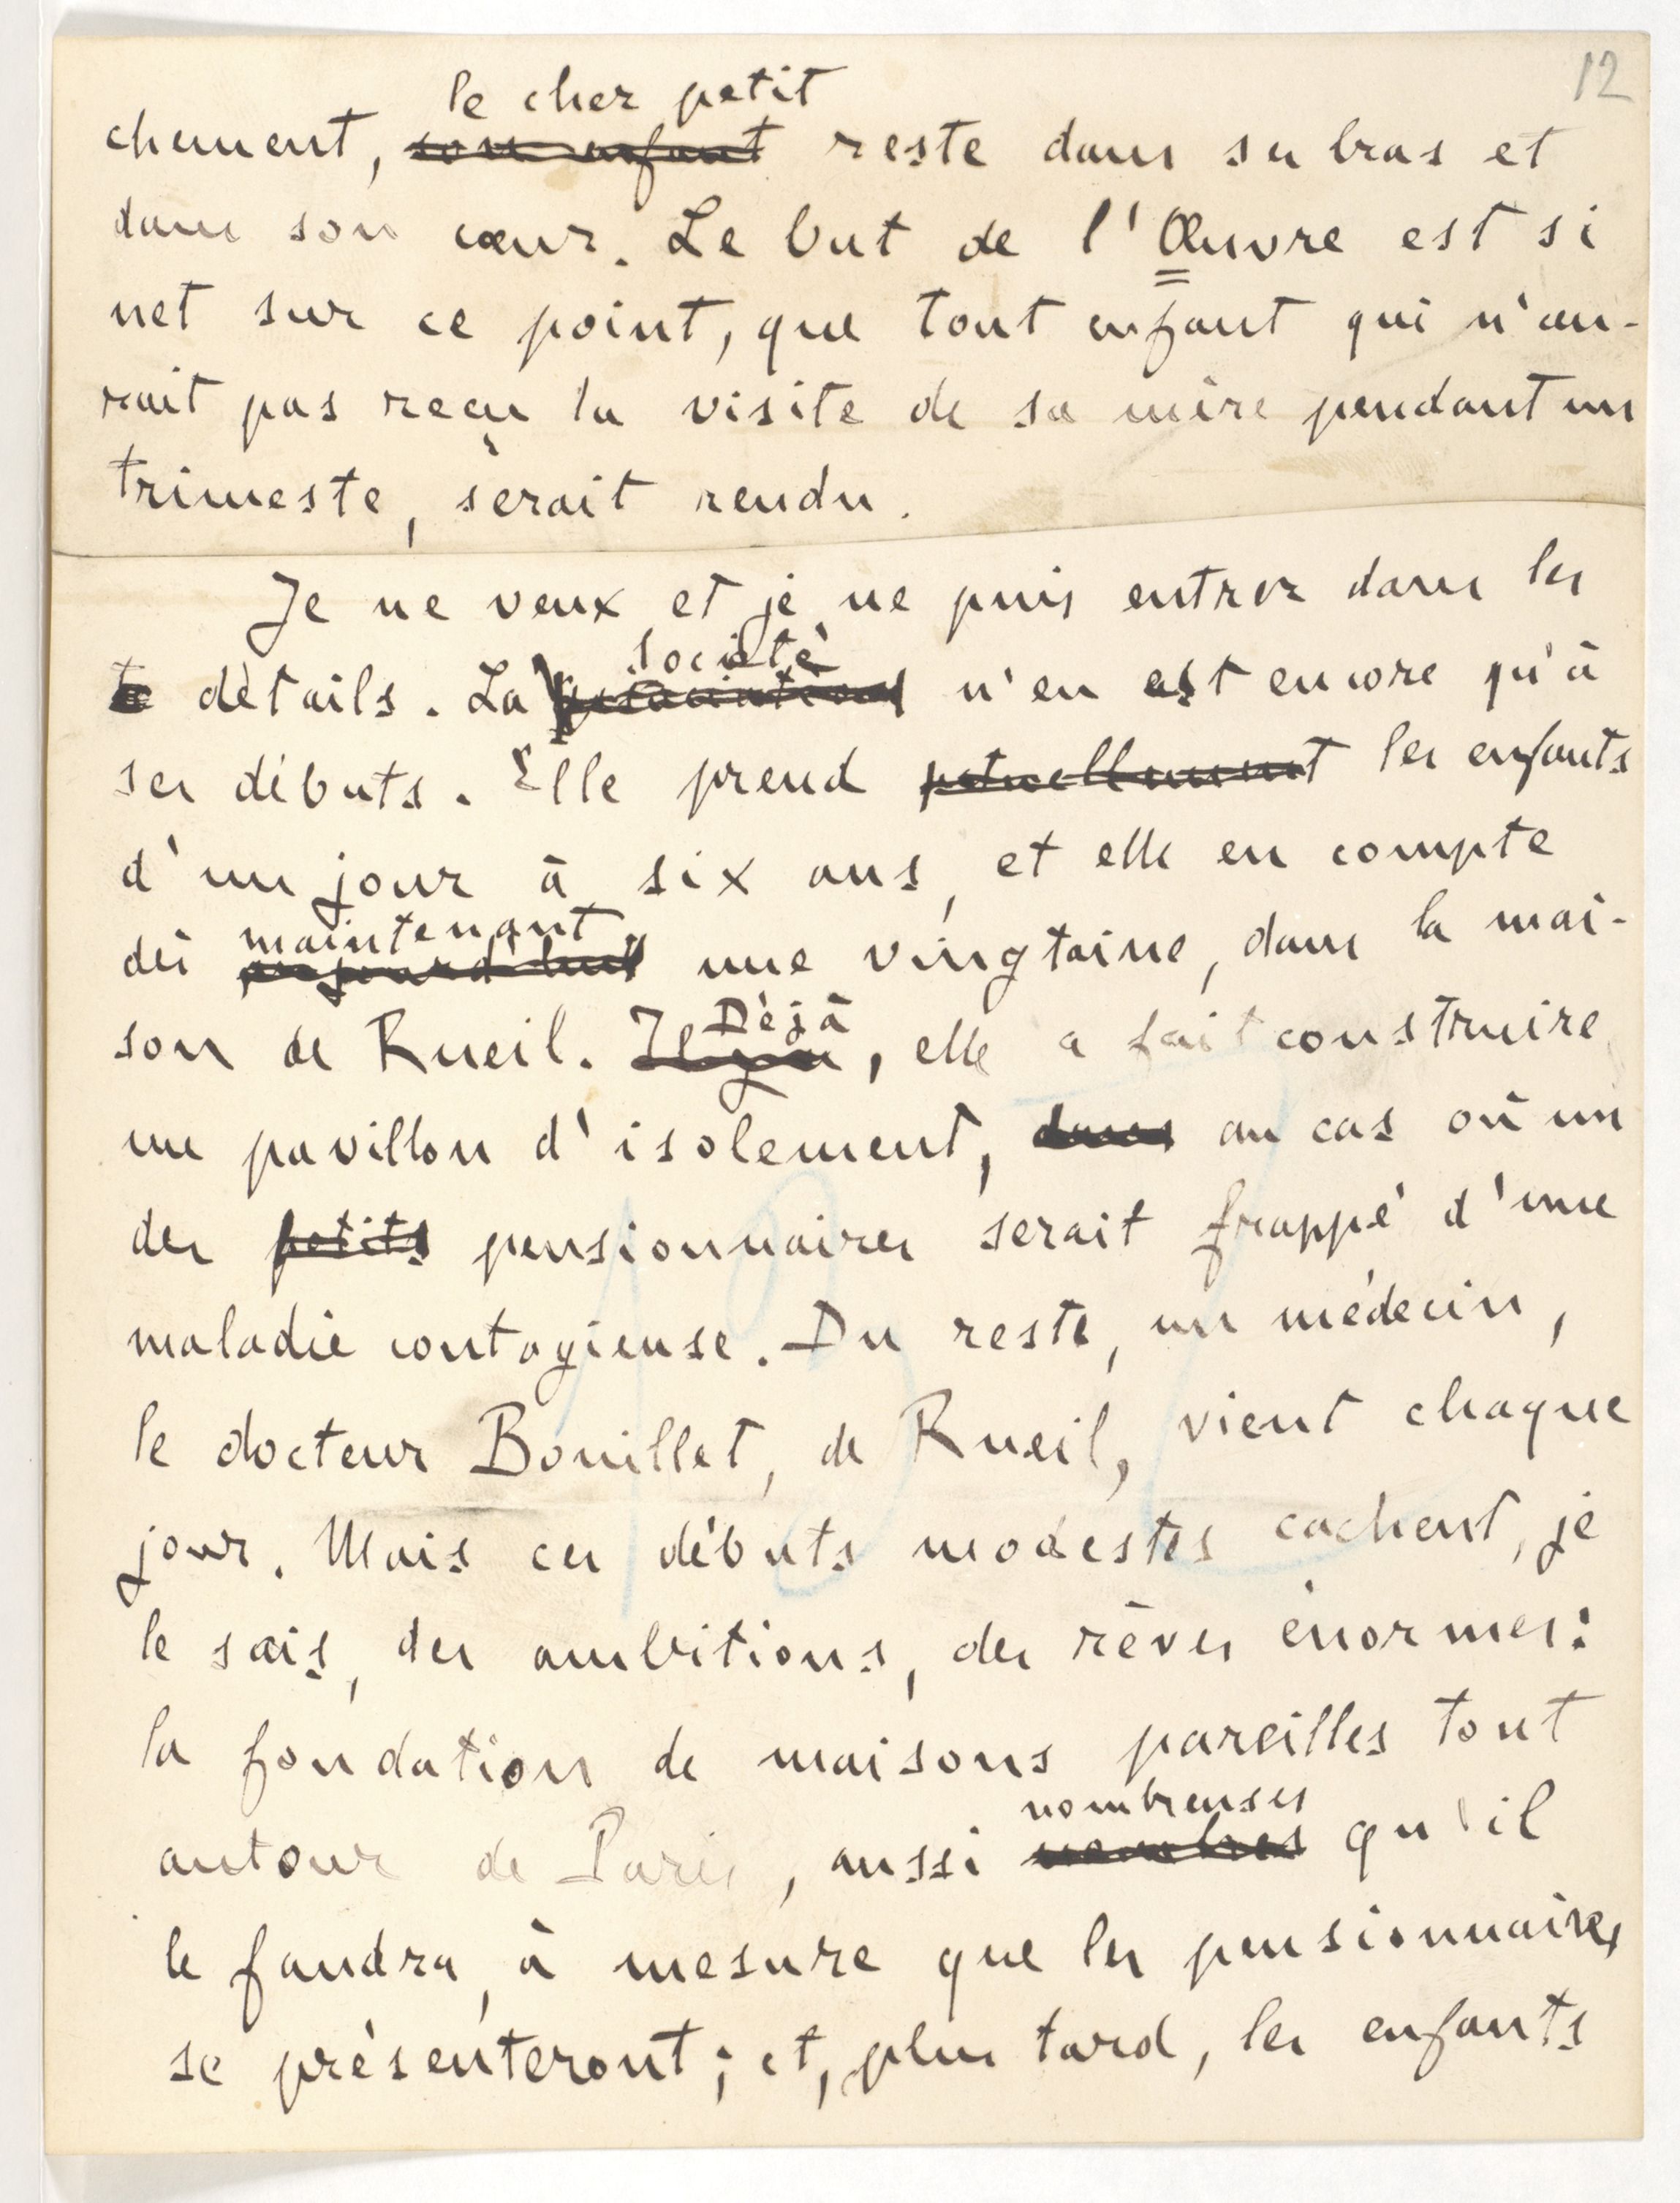 12
le cher petit
chement, son enfant reste dans ses bras et
dans son cœur. Le but de l'Œuvre est si
net sur ce point, que tout enfant qui n'au-
rait pas reçu la visite de sa mère pendant un
trimeste, serait rendu.
Je ne veux et je ne puis entrer dans les
société
détails. La n'en est encore qu'à
ses débuts. Elle prend les enfants
d'un jour à six ans, et elle en compte
maintenant
dès aujourd'hui une vingtaine, dans la mai-
son de Rueil. Il y a Déjà, elle a fait construire
un pavillon d'isolement, dans au cas où un
des petits pensionnaires serait frappé d'une
maladie contagieuse. Du reste, un médecin,
le docteur Bouillet, de Rueil, vient chaque
jour. Mais ces débuts modestes cachent, je
le sais, des ambitions, des rêves énormes:
la fondation de maisons pareilles tout
nombreuses
autour de Paris, aussi nombres qu'il
le faudra, à mesure que les pensionnaires
se présenteront; et, plus tard, les enfants